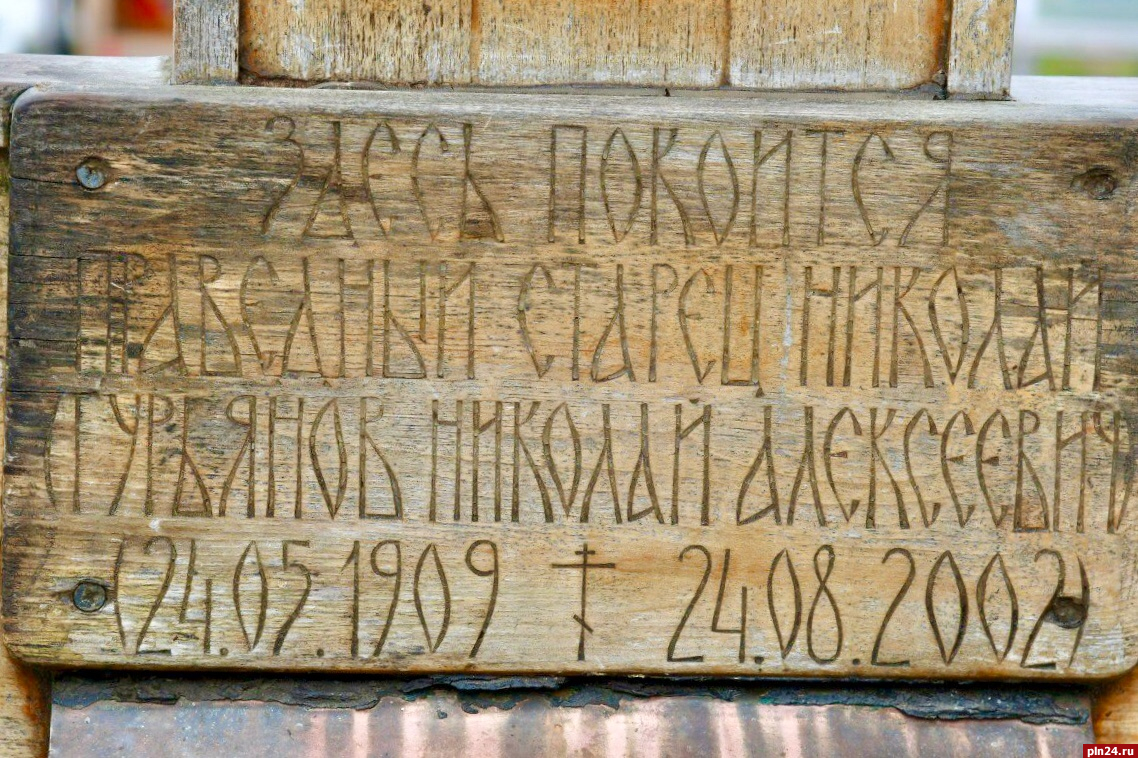 ЗДЕСЬ ПОКОИТСЯ
ПРАВЕДНЫЙ СТАРЕЦ НИКОЛАЙ
(ГУРЬЯНОВ НИКОЛАЙ АЛЕКСЕЕВИЧ)
(24.05.1909 ☦ 24.08.2002)
pln24.ru